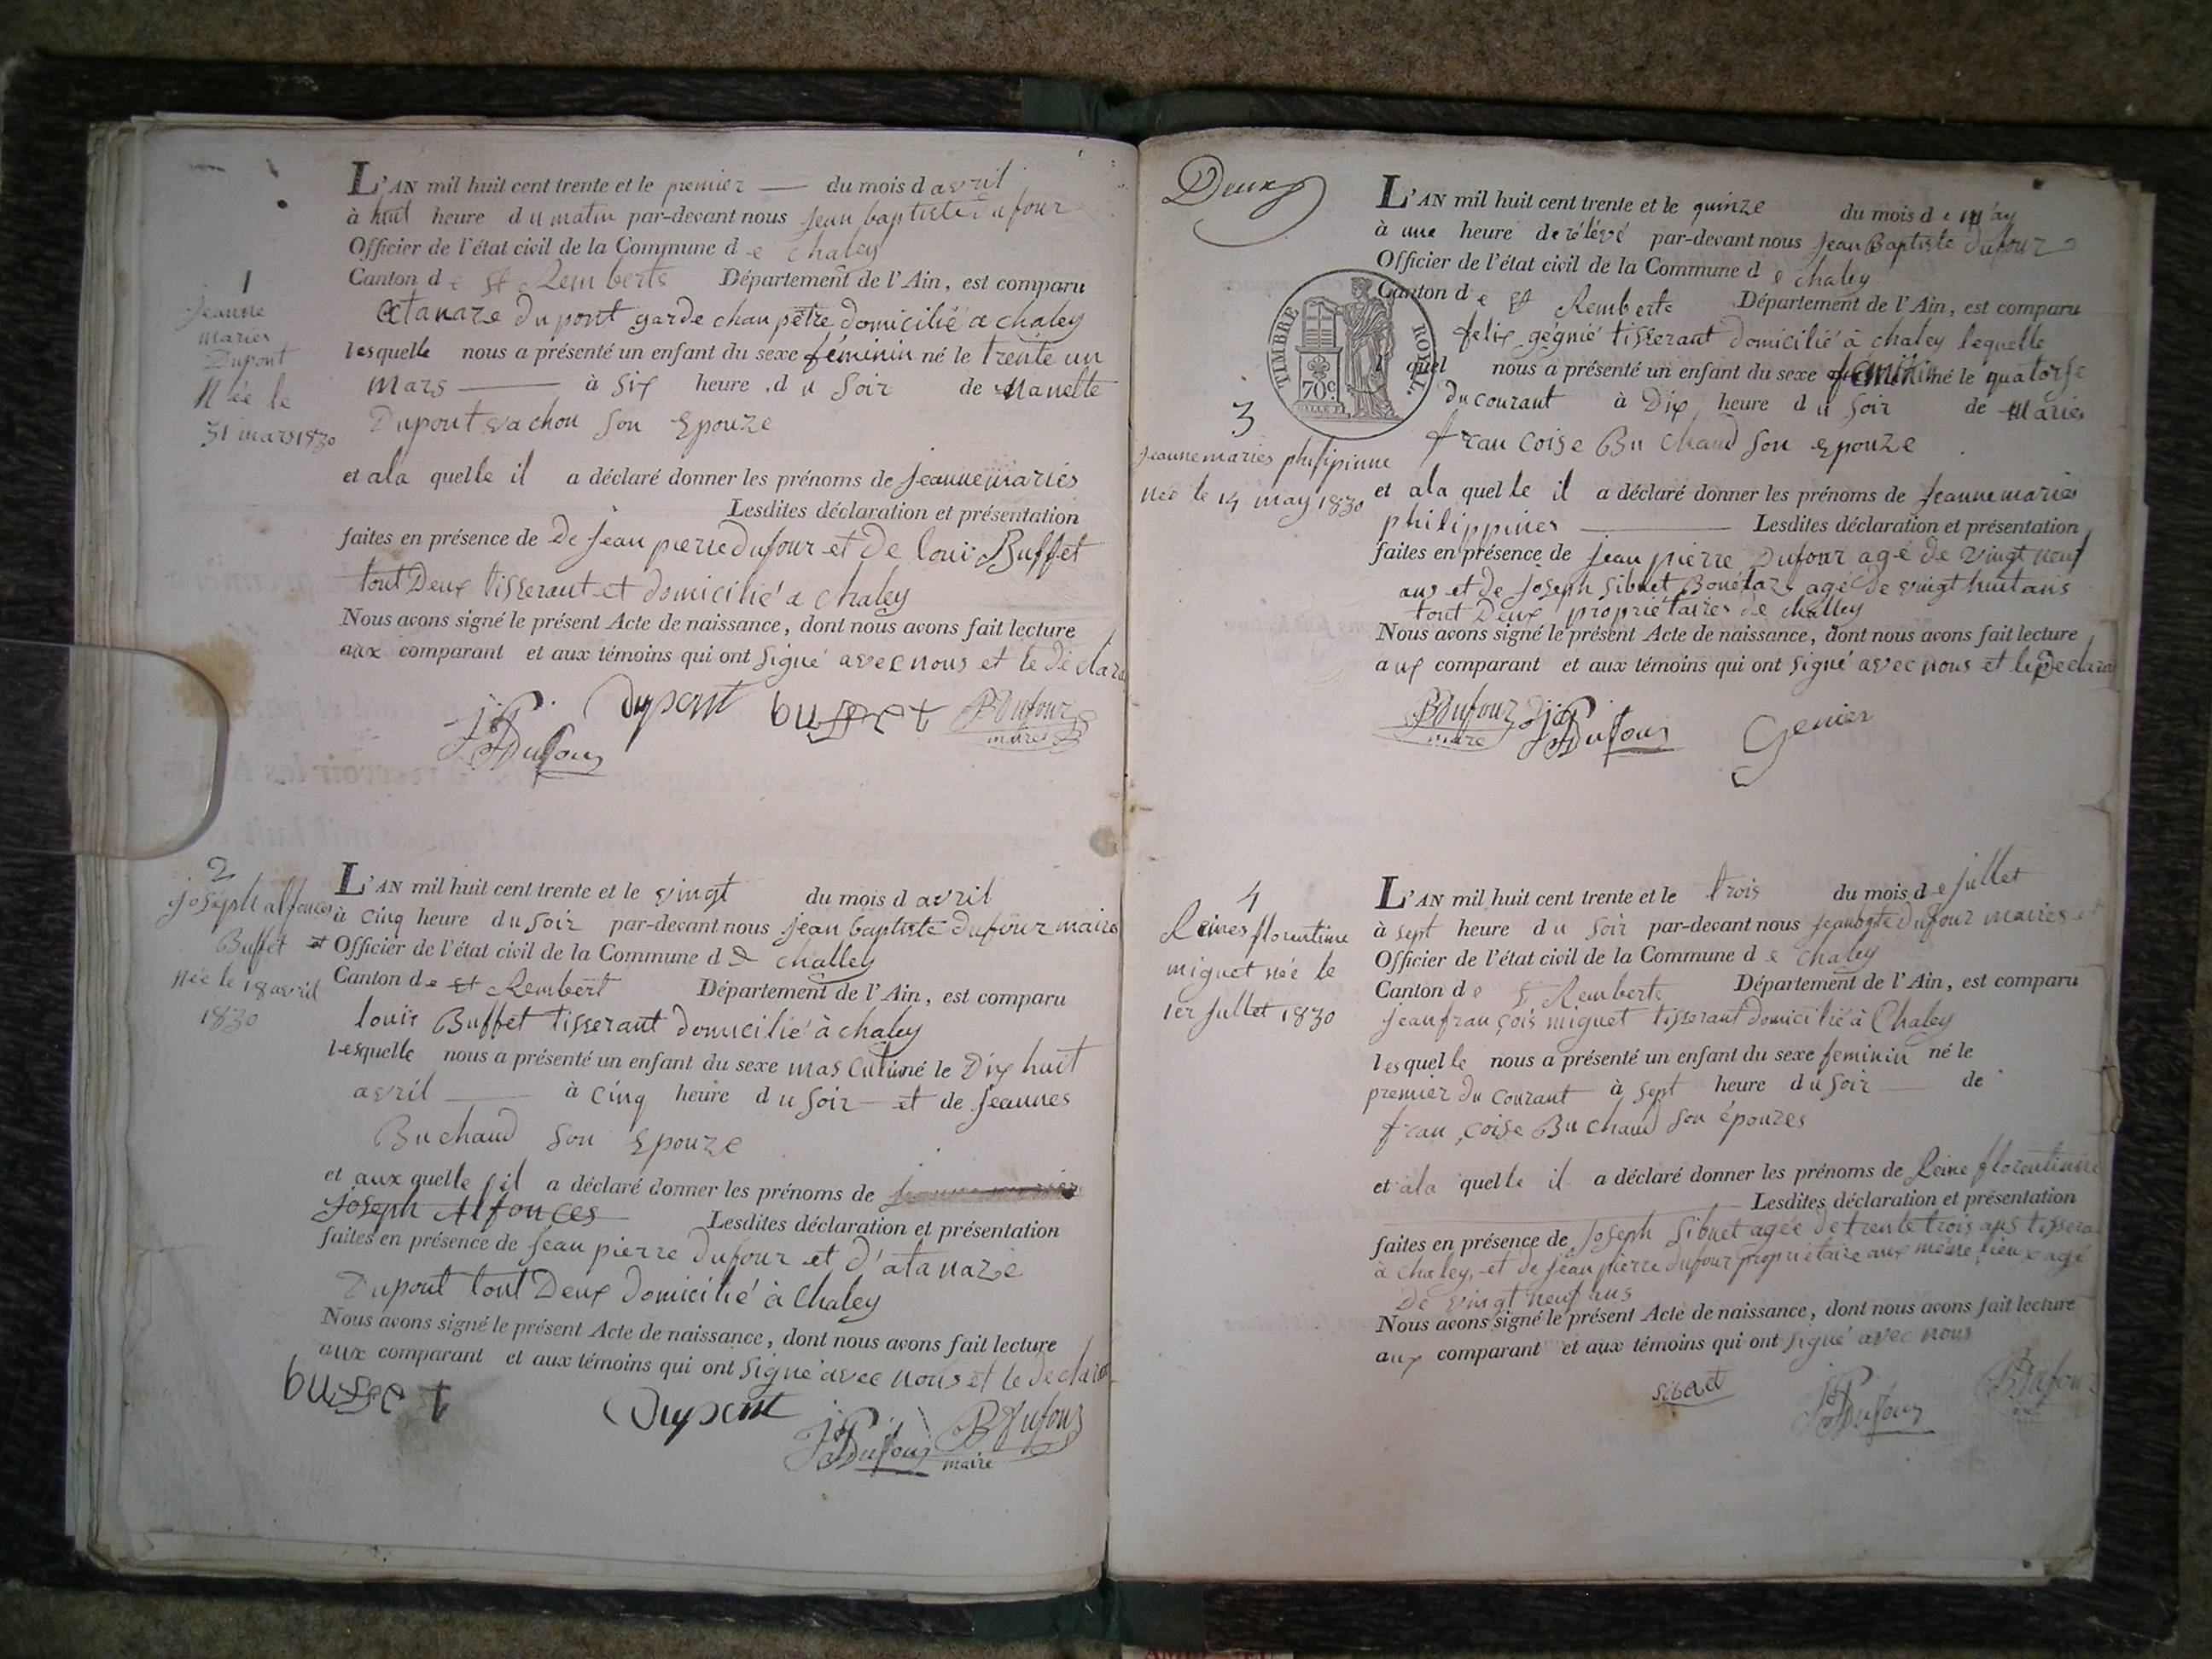 L'AN mil huit cent trente et le premier — du mois d avril
à huit heure du matin par-devant nous jean baptiste dufour
Officier de l'état civil de la Commune de chaley
Canton de St Remberts Département de l'Ain, est comparu
Atanaze Dupont garde chanpêtre domicilié a chaley
lesquelle nous a présenté un enfant du sexe féminin né le trente un
mars — à six heure du soir de Nanette
Dupont vachon son Epouze
et ala quelle il a déclaré donner les prénoms de jeanne maries
Lesdites déclaration et présentation
faites en présence de De jean pierre dufour et De loui Buffet
tout Deux tisserant et domicilié a chaley
Nous avons signé le présent Acte de naissance, dont nous avons fait lecture
aux comparant et aux témoins qui ont signé avec nous et le déclara
1
jeanne
maries
Dupont
Née le
31 mars 1830
Dupont buffet BDufour
JP Dufour maire
2
joseph alfonces
Buffet
Née le 18 avril
1830
L'AN mil huit cent trente et le vingt du mois d avril
à cinq heure du soir par-devant nous jean baptiste dufour maire
et Officier de l'état civil de la Commune de challey
Canton de St Rembert Département de l'Ain, est comparu
louis Buffet tisserant domicilié à chaley
lesquelle nous a présenté un enfant du sexe masculin né le Dix huit
avril — à cinq heure du soir et de jeannes
Buchaud son Epouze
et aux quelle il a déclaré donner les prénoms de
joseph Alfonces Lesdites déclaration et présentation
faites en présence de jean pierre dufour et d'atanaze
Dupont tout Deux domicilié à chaley
Nous avons signé le présent Acte de naissance, dont nous avons fait lecture
aux comparant et aux témoins qui ont signé avec nous et le declara
buffet Dupont JP Dufour BDufour
maire
Deux
L'AN mil huit cent trente et le quinze du mois de may
à une heure de rélévé par-devant nous jean Baptiste dufour
Officier de l'état civil de la Commune de chaley
Canton de St Remberts Département de l'Ain, est comparu
felix gégnié tisserant domicilié à chaley lequelle
l quel nous a présenté un enfant du sexe féminin né le quatorse
du courant à Dix heure du soir de Maries
francoise Buchaud son epouze
et ala quelle il a déclaré donner les prénoms de jeanne maries
philippines — Lesdites déclaration et présentation
faites en présence de jean pierre Dufour agé de vingt neuf
ans et de joseph sibuet Bonétaz agé de vingt huit ans
tout Deux propriétaires de challey
Nous avons signé le présent Acte de naissance, dont nous avons fait lecture
aux comparant et aux témoins qui ont signé avec nous et le Declara
TIMBRE ROYAL
70c.
3
jeanne maries philipinne
Neé le 14 may 1830
BDufour JP Dufour Genier
maire
4
Reines florentine
miguet née le
1er jullet 1830
L'AN mil huit cent trente et le trois du mois de jullet
à sept heure du soir par-devant nous jean bpte Dufour maires et
Officier de l'état civil de la Commune de chaley
Canton de St Remberts Département de l'Ain, est comparu
jean françois miguet tisserant domicilié à Chaley
lesquelle nous a présenté un enfant du sexe feminin né le
premier du courant à sept heure du soir — de
françoise Buchaud son épouzes
et ala quelle il a déclaré donner les prénoms de Reine florentinne
Lesdites déclaration et présentation
faites en présence de joseph sibuet agée de trente trois ans tissera
à chaley, et de jean pierre dufour propriétaire aux même lieux agé
De vingt neuf ans
Nous avons signé le présent Acte de naissance, dont nous avons fait lecture
aux comparant et aux témoins qui ont signé avec nous
sibuet JP Dufour BDufour